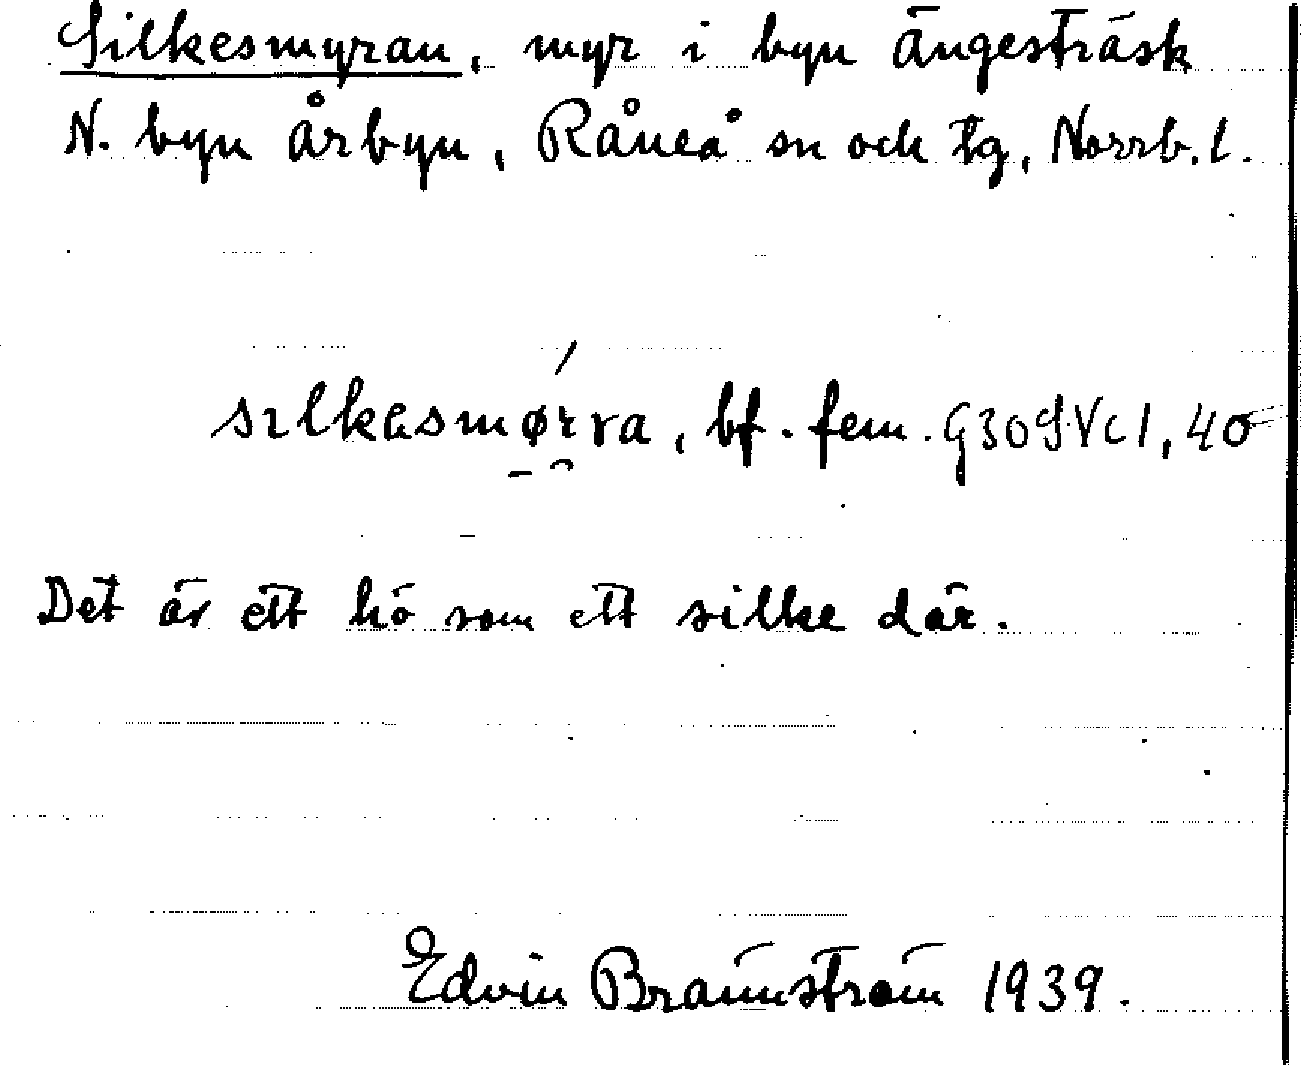 Silkesmyran, myr i byn Ängesträsk
N. byn Årbyn, Råneå sn och tg, Norrb. l.
sɪlkasmørra, bf. fem.
Det är ett hö som ett silke där.
Edvin Brännström 1939.